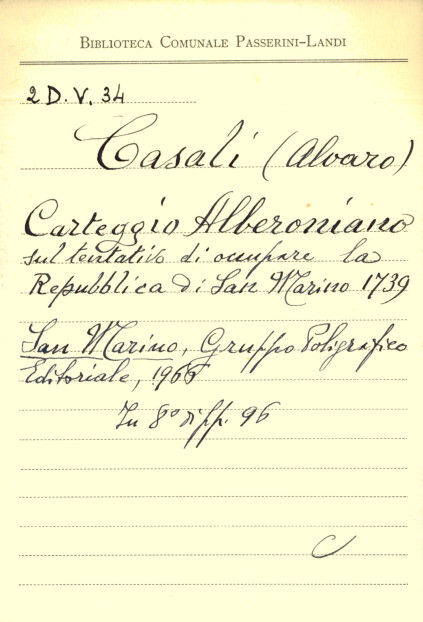 BIBLIOTECA COMUNALE PASSERINI-LANDI
2 D. V. 34
Casali (Alvaro)
Carteggio Alberoniano
sul tentativo di occupare la
Repubblica di San Marino 1739
San Marino, Gruppo Poligrafico
Editoriale, 1966
In 8° di pp. 96
C